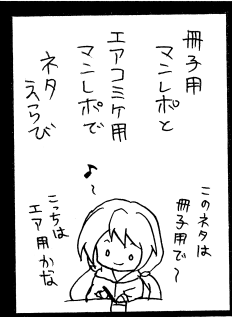 冊子用
マンレポと
エアコミケ用
マンレポで
ネタ
えらび
このネタは
冊子用で～
♪～
こっちは
エア用かな